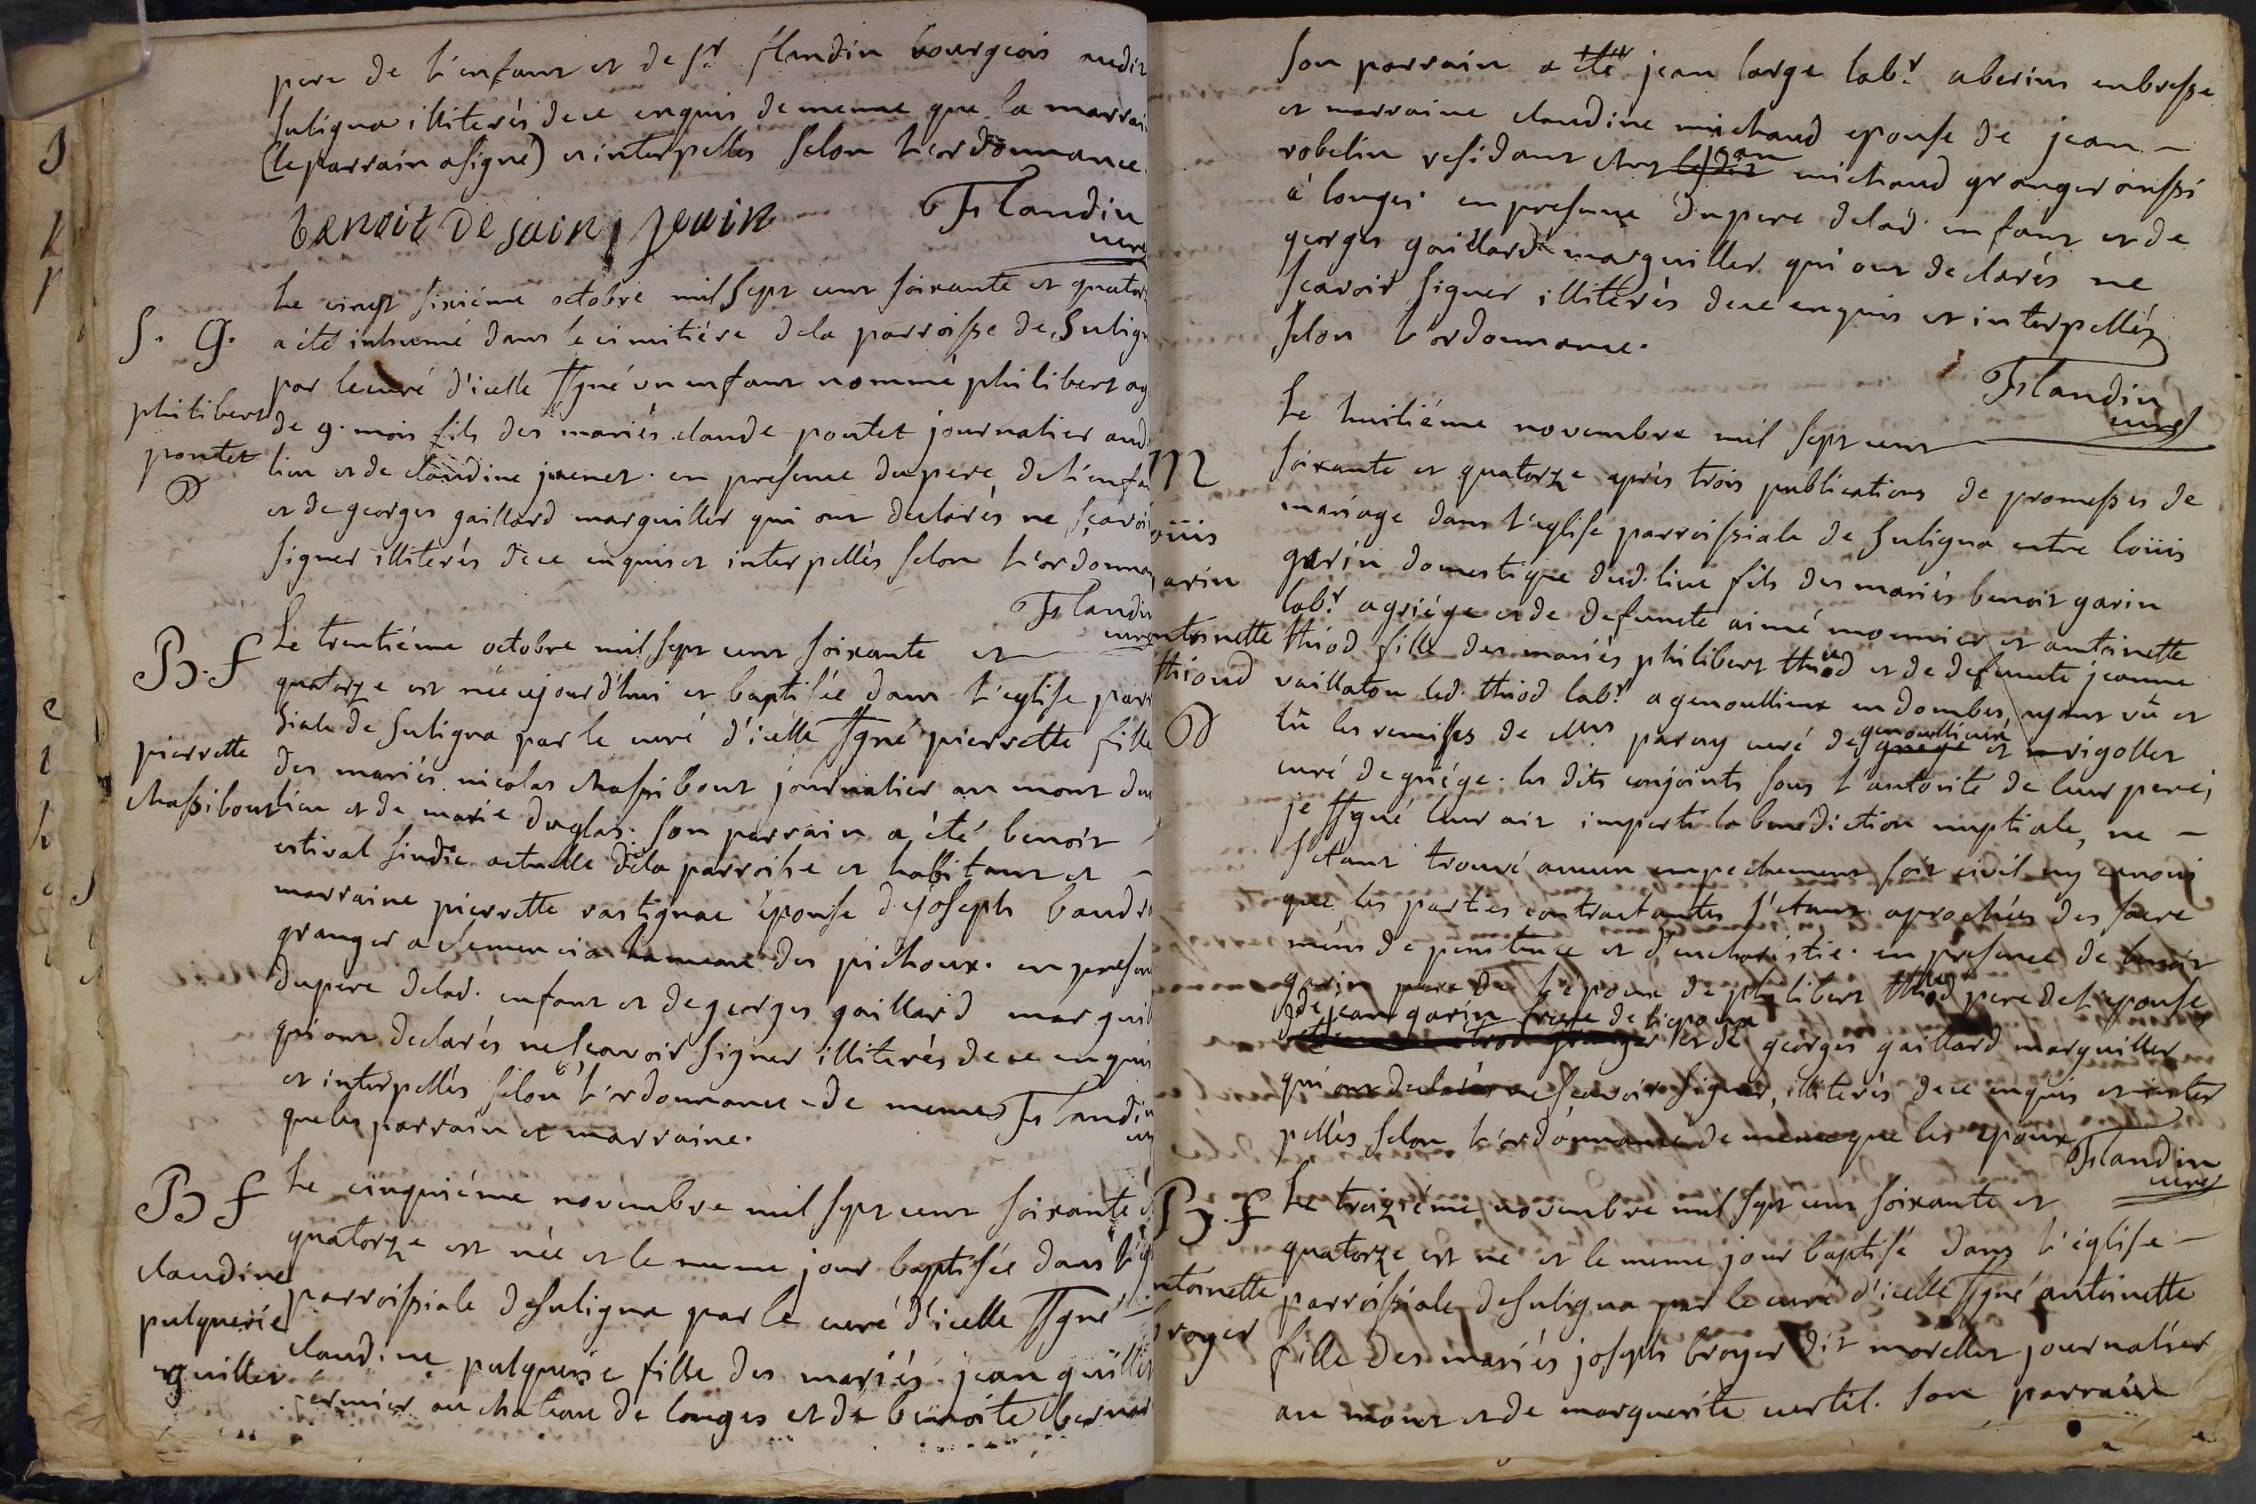 pere de l'enfant et de Sr. flandin bourgeois audit
Suligna illiterés de ce enquis de meme que la marrai
(le parrain a signé) et interpellés Selon L'ordonnance.
benoit De sain jeain
Flandin
curé
Le vingt Sixiéme octobre mil Sept cent Soixante et quator
S. G.
a été inhumé dans le cimitiére de la parroisse de Sulign
par le curé d'icelle ssgné un enfant nommé philibert ag
philibert
de 9. mois fils des mariés claude pontet journalier aud
pontet
lieu et de claudine juenet. en presence du pere de l'enfa
et de georges gaillard marguiller qui ont declarés ne sçavoi
Signer illiterés de ce enquis et interpellés Selon L'ordonna
Flandin
curé
B. f
Le trentiéme octobre mil Sept cent Soixante et
quatorze est née cejourd'hui et baptisée dans L'eglise parr
siale de Suligna par le curé d'icelle ssgné pierrette fille
pierrette
des mariés nicolas chassibout journalier au mont du
chassibout
lieu et de marie duglas. Son parrain a été benoit
estival Sindic actuelle de la parroisse et habitant et
marraine pierrette rastignac épouse de joseph baudr
granger a clemencia hameau des pichoux. en presen
du pere de lad. enfant et de georges gaillard margui
qui ont declarés ne Scavoir Signer illiterés de ce enquis
et interpellés Selon L'ordonnance de meme
Flandin
que les parrain et marraine.
B f
Le cinquiéme novembre mil Sept cent Soixante
quatorze est née et le meme jour baptisée dans l'egl
claudine
parroissiale de Suligna par le curé d'icelle ssgné
pulquerie
claudine pulquerie fille des mariés jean guillet
guillet
fermier au chateau de longes et de benoite bernar
Son parrain a été jean large labr. a berins en bresse
et marraine claudine michaud epouse de jean
robelin residant chez jean michaud granger aussi
à longes. en presence du pere de lad. enfant et de
georges gaillard marguiller qui ont declarés ne
Scavoir Signer illiterés de ce enquis et interpellés
Selon L'ordonnance.
Flandin
curé
Le huitiéme novembre mil Sept cent
M
Soixante et quatorze aprés trois publications de promesses de
mariage dans l'eglise parroissiale de Suligna entre loüis
oüis
garin domestique dud. lieu fils des mariés benoit garin
arin
labr. a griége et de defuncte aimé monnier et antoinette
ntoinette
thiod fille des mariés philibert thiod et de defuncte jeanne
thioud
vaillaton led. thiod labr. a genoullieux en dombes, ayant vû et
lû les remisses de Mrs parny curé de genoullieux et rigollet
curé de griége. les dits conjoints Sous l'autorité de leur peres,
je ssgné leur ait imparti la benediction nuptiale, ne
S'etant trouvé aucun empechement soit civil ny canoni
que, les parties contractantes s'etant aprochées des Sacre
mens de penitence et d'eucharistie. en presence de benoit
garin pere de l'epoux de philibert thiod pere de l'epouse
de jean garin frere de l'epoux
et de georges gaillard marguiller
qui ont declarés ne sçavoir Signer, illiterés de ce enquis et inter
pellés Selon L'ordonnance de meme que les epoux
Flandin
curé
B. f
Le treiziéme novembre mil Sept cent Soixante et
quatorze est né et le meme jour baptisé dans l'église
ntoinette
parroissiale de Suligna par le curé d'icelle ssgné antoinette
royer
fille des mariés joseph broyer dit morellet journalier
au mont et de marguerite curtil. Son parrain